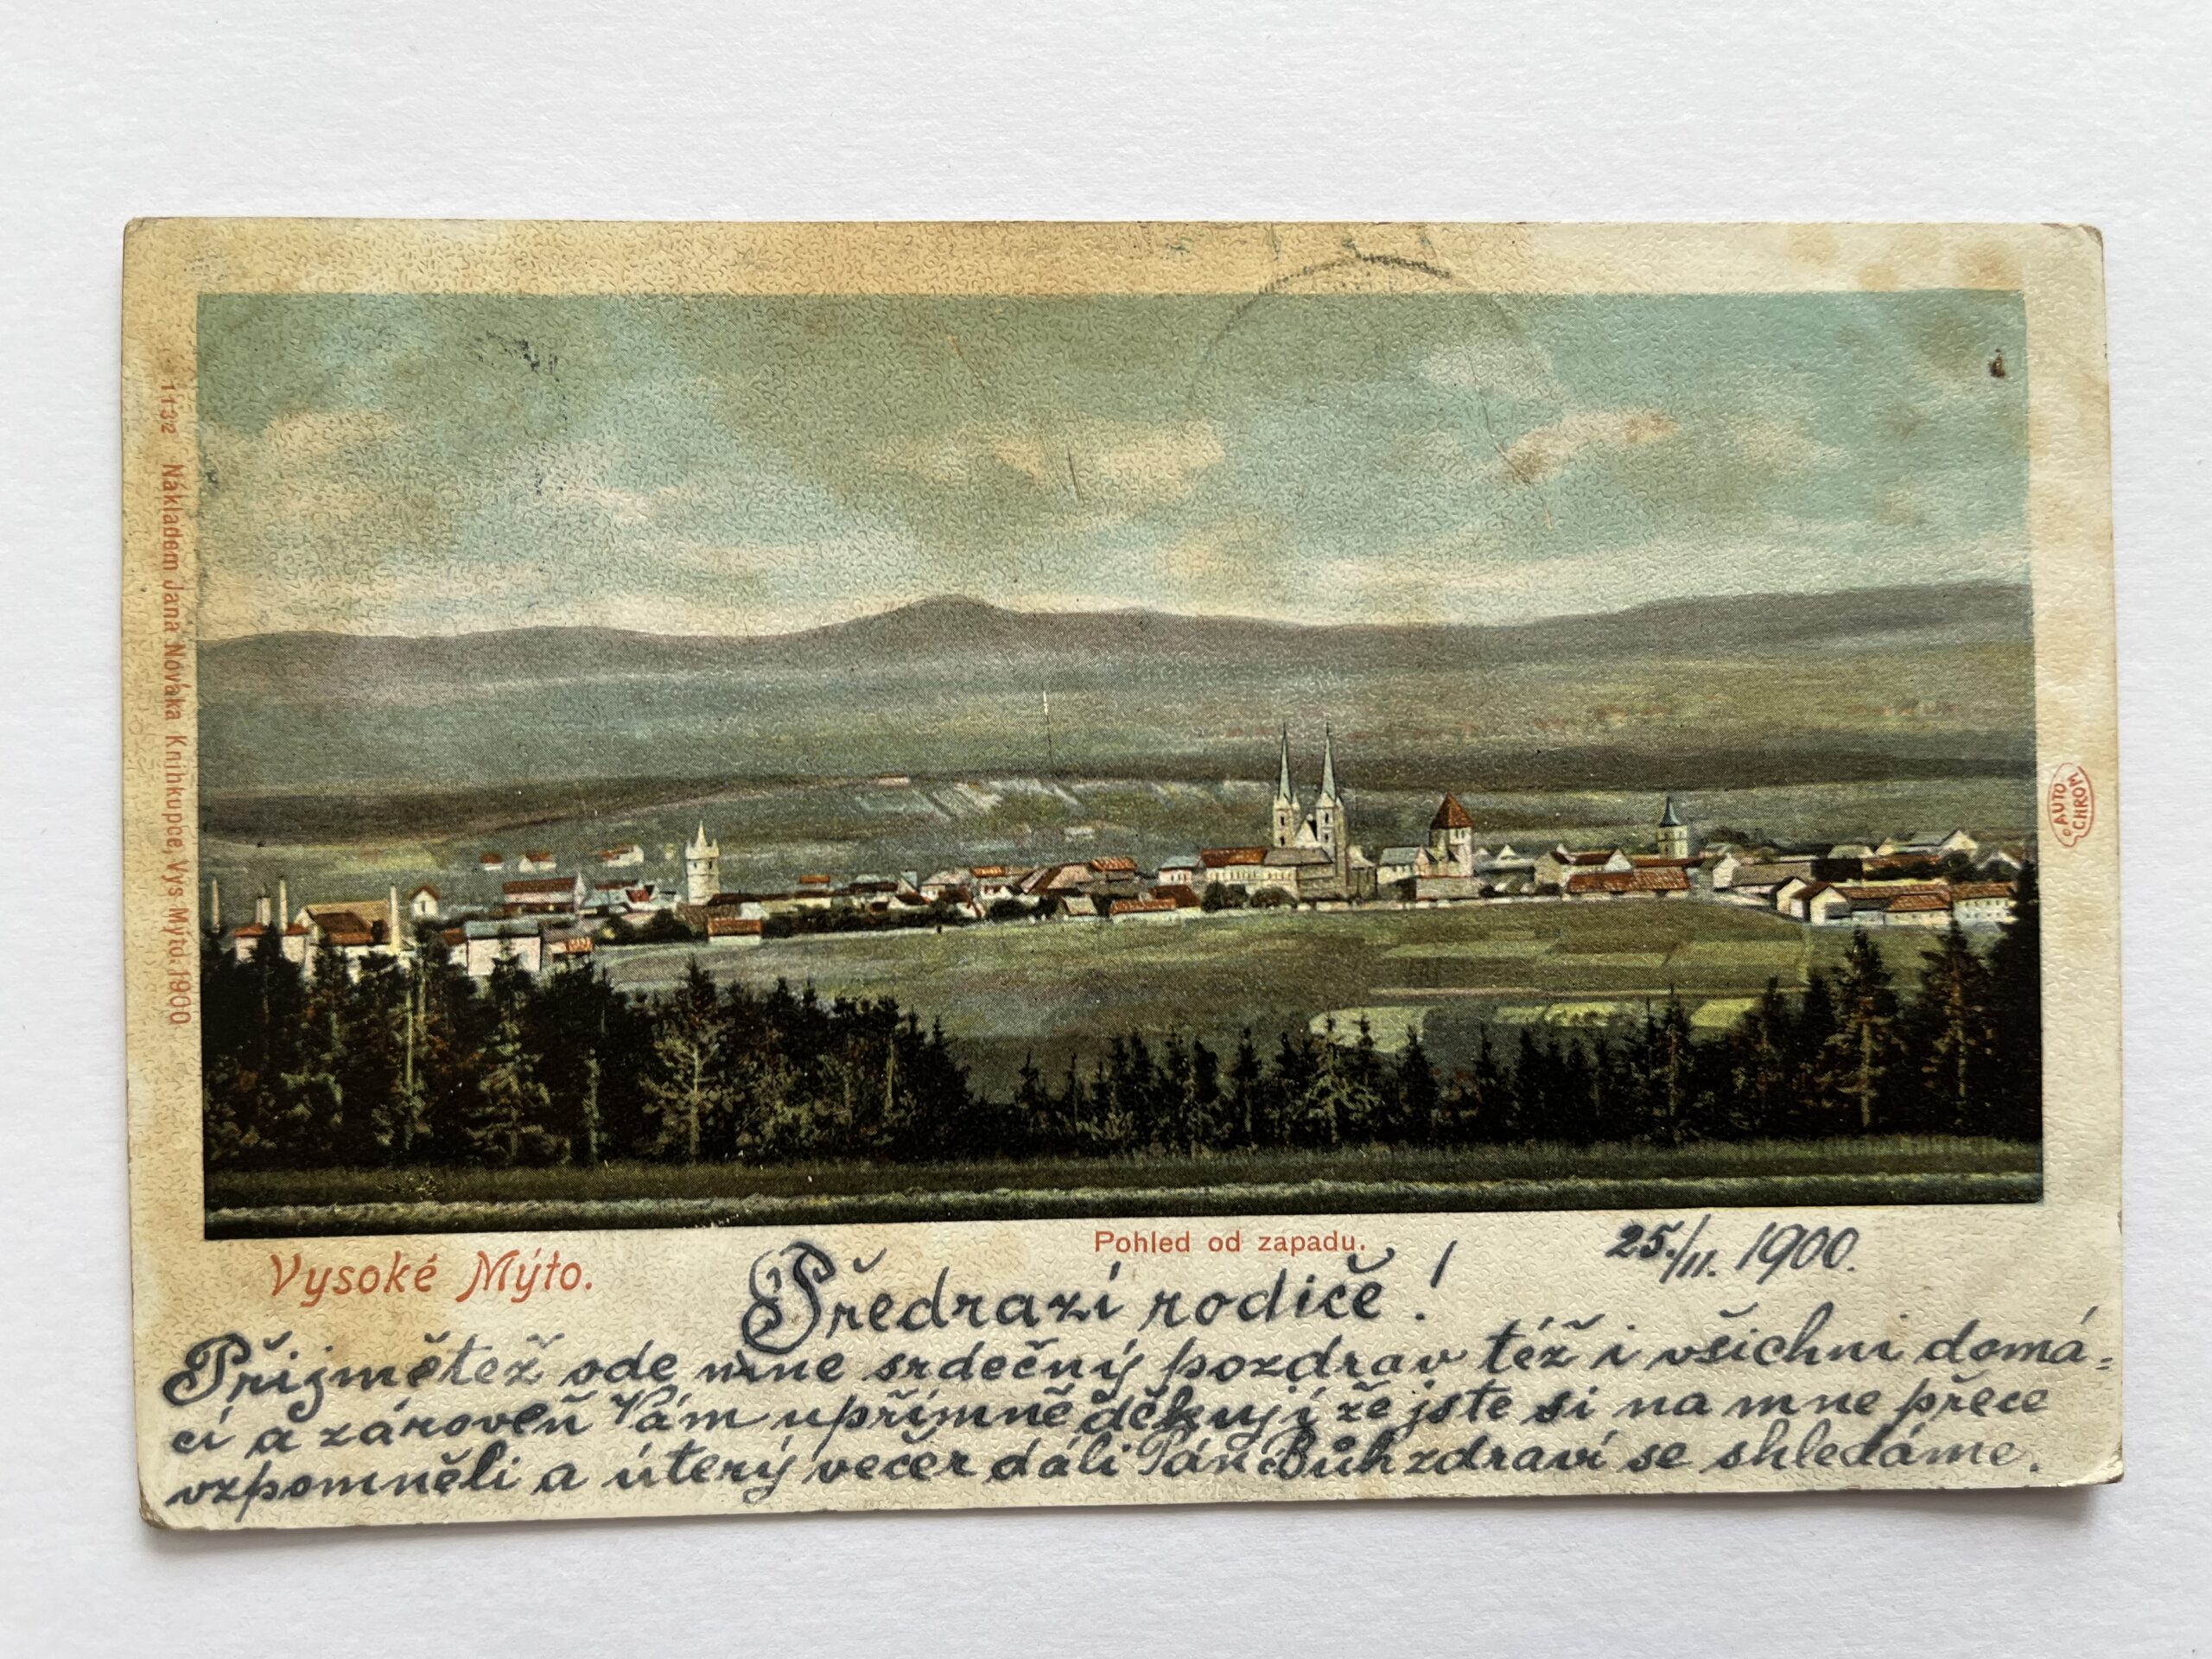 1132 Nákladem Jana Nováka Knihkupce, Vys. Mýto. 1900
AUTO
CHROM
Pohled od západu.
Vysoké Mýto.
25./II. 1900.
Předrazí rodiče!
Přijmětež ode mne srdečný pozdrav též i všichni domá-
cí a zároveň Vám upřímně děkuji že jste si na mne přece
vzpomněli a úterý večer dáli Pán Bůh zdraví se shledáme.